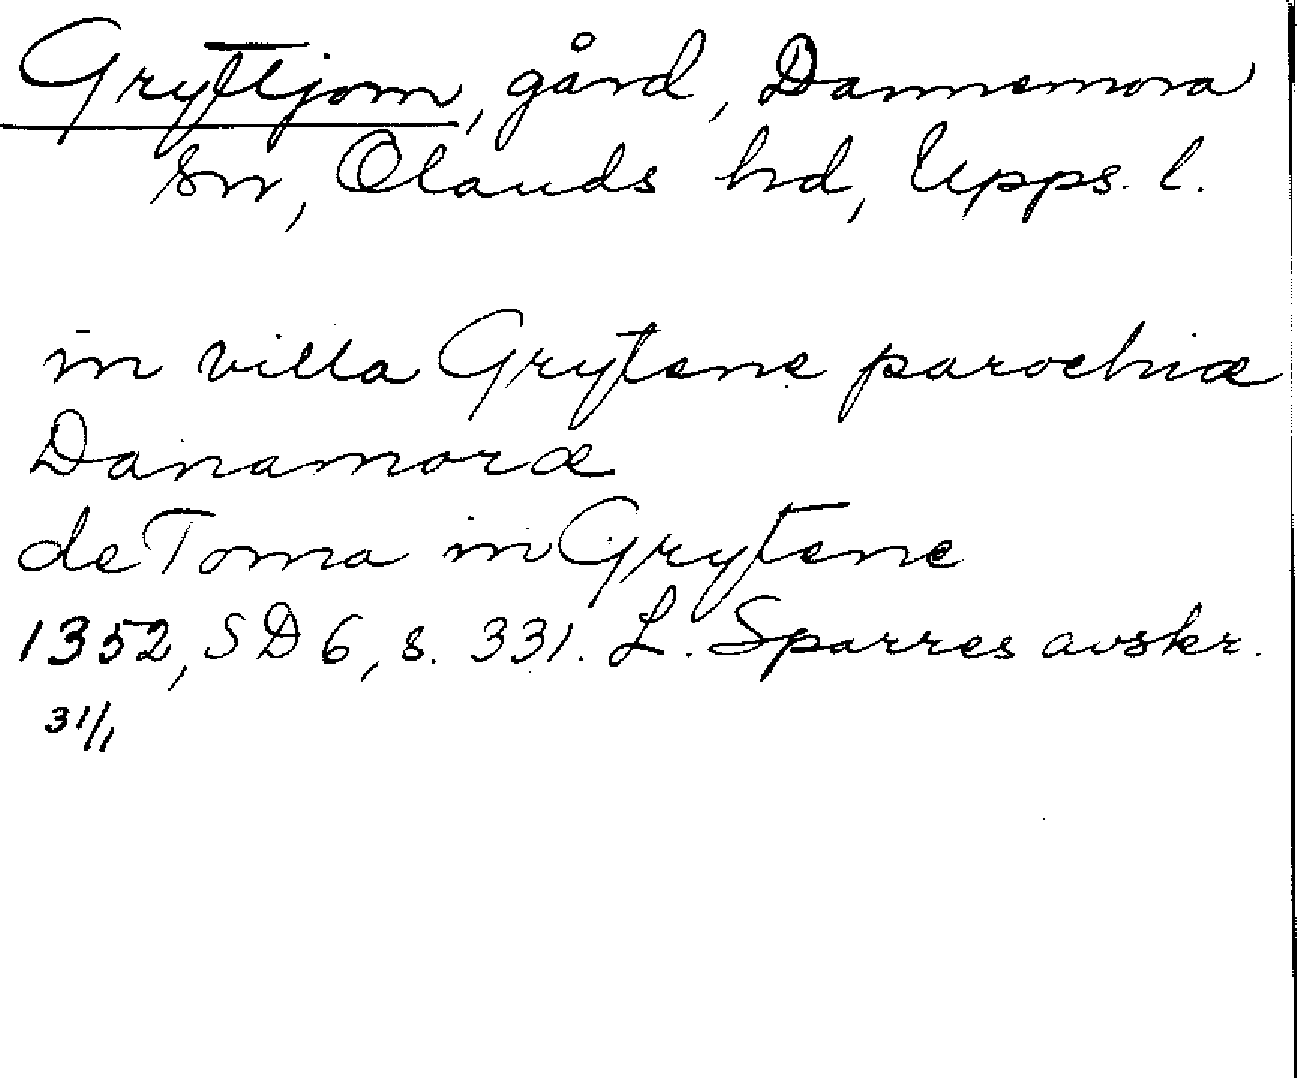 Gryttjom, gård, Dannemora
sn, Olands hd, Upps. l.
in villa Grytene parochiæ
Danamoræ
de Toma in Grytene
1352, SD 6, s. 331. L. Sparres avskr.
31/1